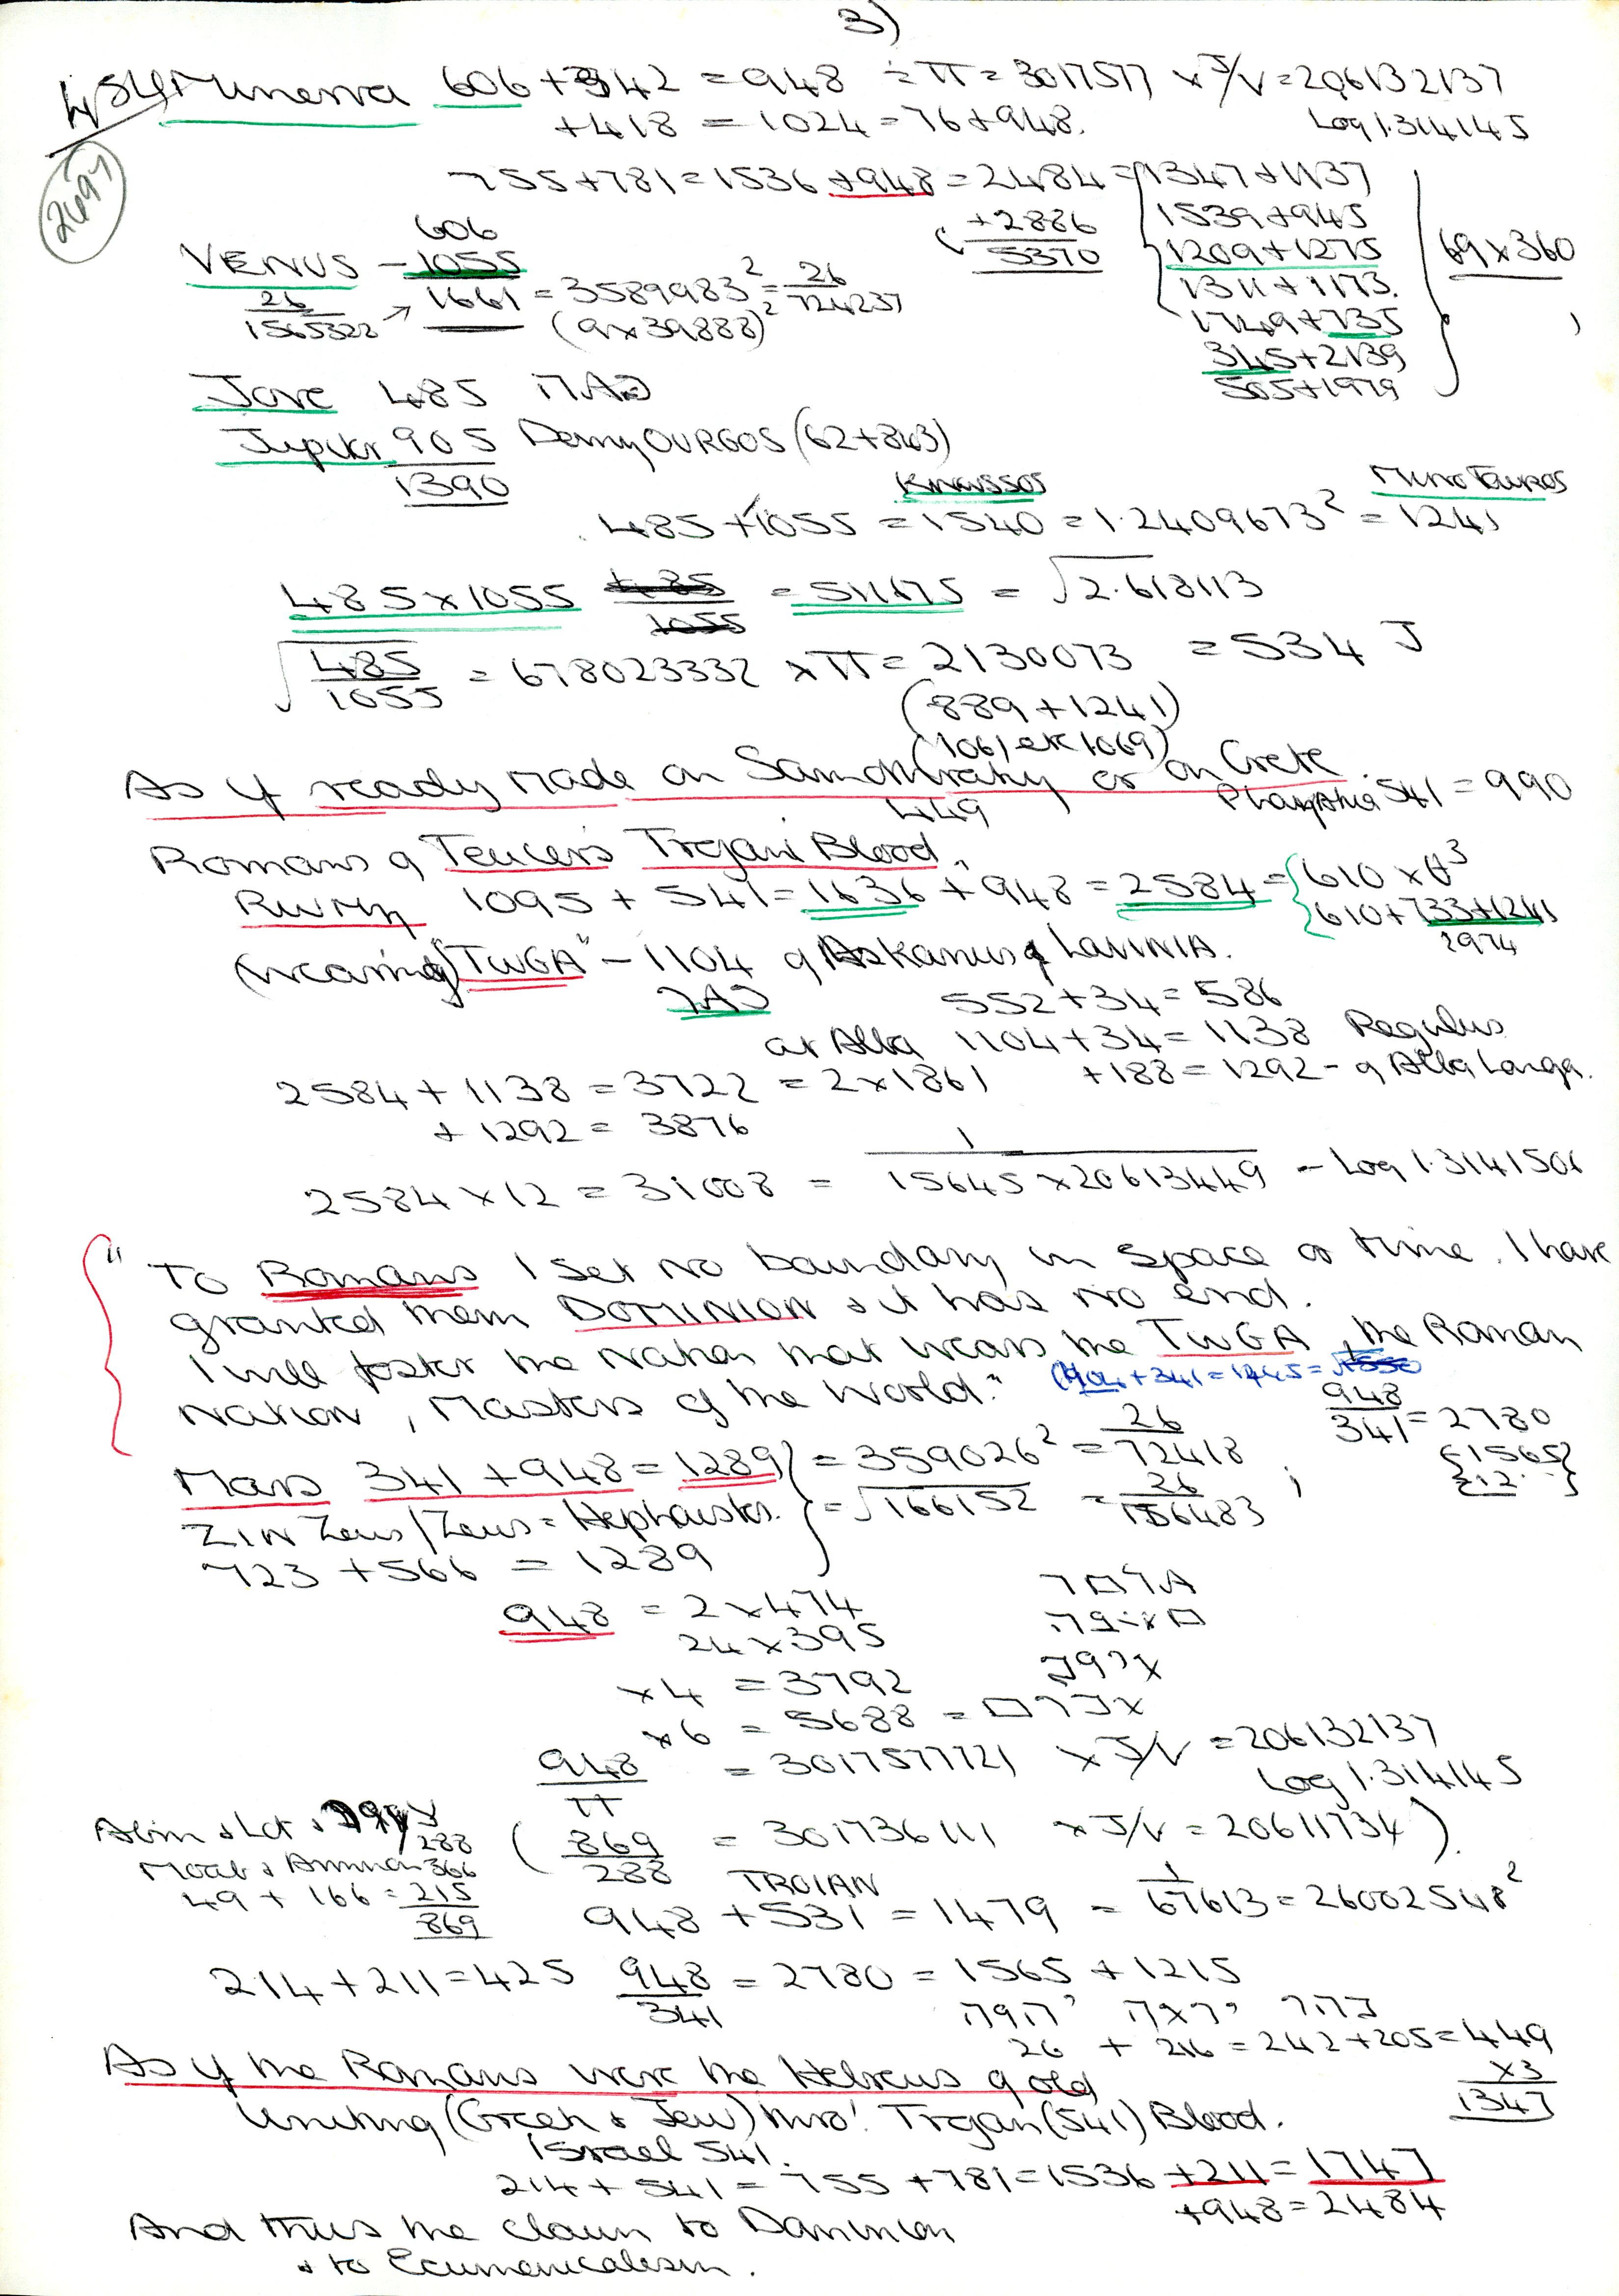 3)
Minerva 606 + 342 = 948 ÷ π = 3017577 × J/V = 206132137
+418 = 1024 = 76 + 948. Log 1.314145
2697
755 + 781 = 1536 + 948 = 2484 = 1347 + 1137
+2886 1539 + 945
5370 1209 + 1275 69 × 360
1311 + 1173.
1749 + 735
345 + 2139
505 + 1979
606
VENUS – 1055
26 / 1565322 → 1661 = 3589983² = 26 / 724237
(9 × 39888)²
Jove 485
Jupiter 905 DemyOURGOS (62 + 843)
1390
Knwssos MinoTauros
485 + 1055 = 1540 = 1.2409673² = 1241
485 × 1055 = 511675 = √2.618113
√485/1055 = 678023332 × π = 2130073 = 534 J
(889 + 1241)
(1061 etc 1069)
As if ready made on Samothraky or on Crete.
449 541 = 990
Romans of Teucer's Trojan Blood.
RWMη 1095 + 541 = 1636 + 948 = 2584 = 610 × θ³
610 + 733 + 1241
1974
(wearing) "TWGA" – 1104 of Askanius & LAVINIA.
552 + 34 = 586
at Alba 1104 + 34 = 1138 Regulus
2584 + 1138 = 3722 = 2 × 1861 +188 = 1292 – of Alba Longa.
+ 1292 = 3876
2584 × 12 = 31008 = 1 / 15645 × 20613449 – Log 1.3141506
"To Romans I set no boundary in space or time. I have
granted them DOMINION & it has no end.
I will foster the Nation that wears the TWGA, the Roman
Nation, Masters of the World."
(1104 + 341 = 1445 =
948/341 = 2780
{1565}
Mars 341 + 948 = 1289 = 359026² = 26/72418
ZIN Zeus / Zeus = Hephaistos. = √166152 = 26/156483
723 + 566 = 1289
948 = 2 × 474
24 × 395
× 4 = 3792
× 6 = 5688
948/π = 3017577721 × J/V = 206132137
Log 1.314145
288
Moab & Ammon 366
49 + 166 = 215
869
(869/288 = 301736111 × J/V = 20611734)
TROIAN
948 + 531 = 1479 – 1/67613 = 26002548²
214 + 211 = 425 948/341 = 2780 = 1565 + 1215
26 + 216 = 242 + 205 = 449
×3
1347
As if the Romans were the Hebrews of old
Uniting (Greek & Jew) thro' Trojan (541) Blood.
Israel 541.
214 + 541 = 755 + 781 = 1536 + 211 = 1747
+948 = 2484
And thus the claim to Dominion
& to Ecumenicalism.